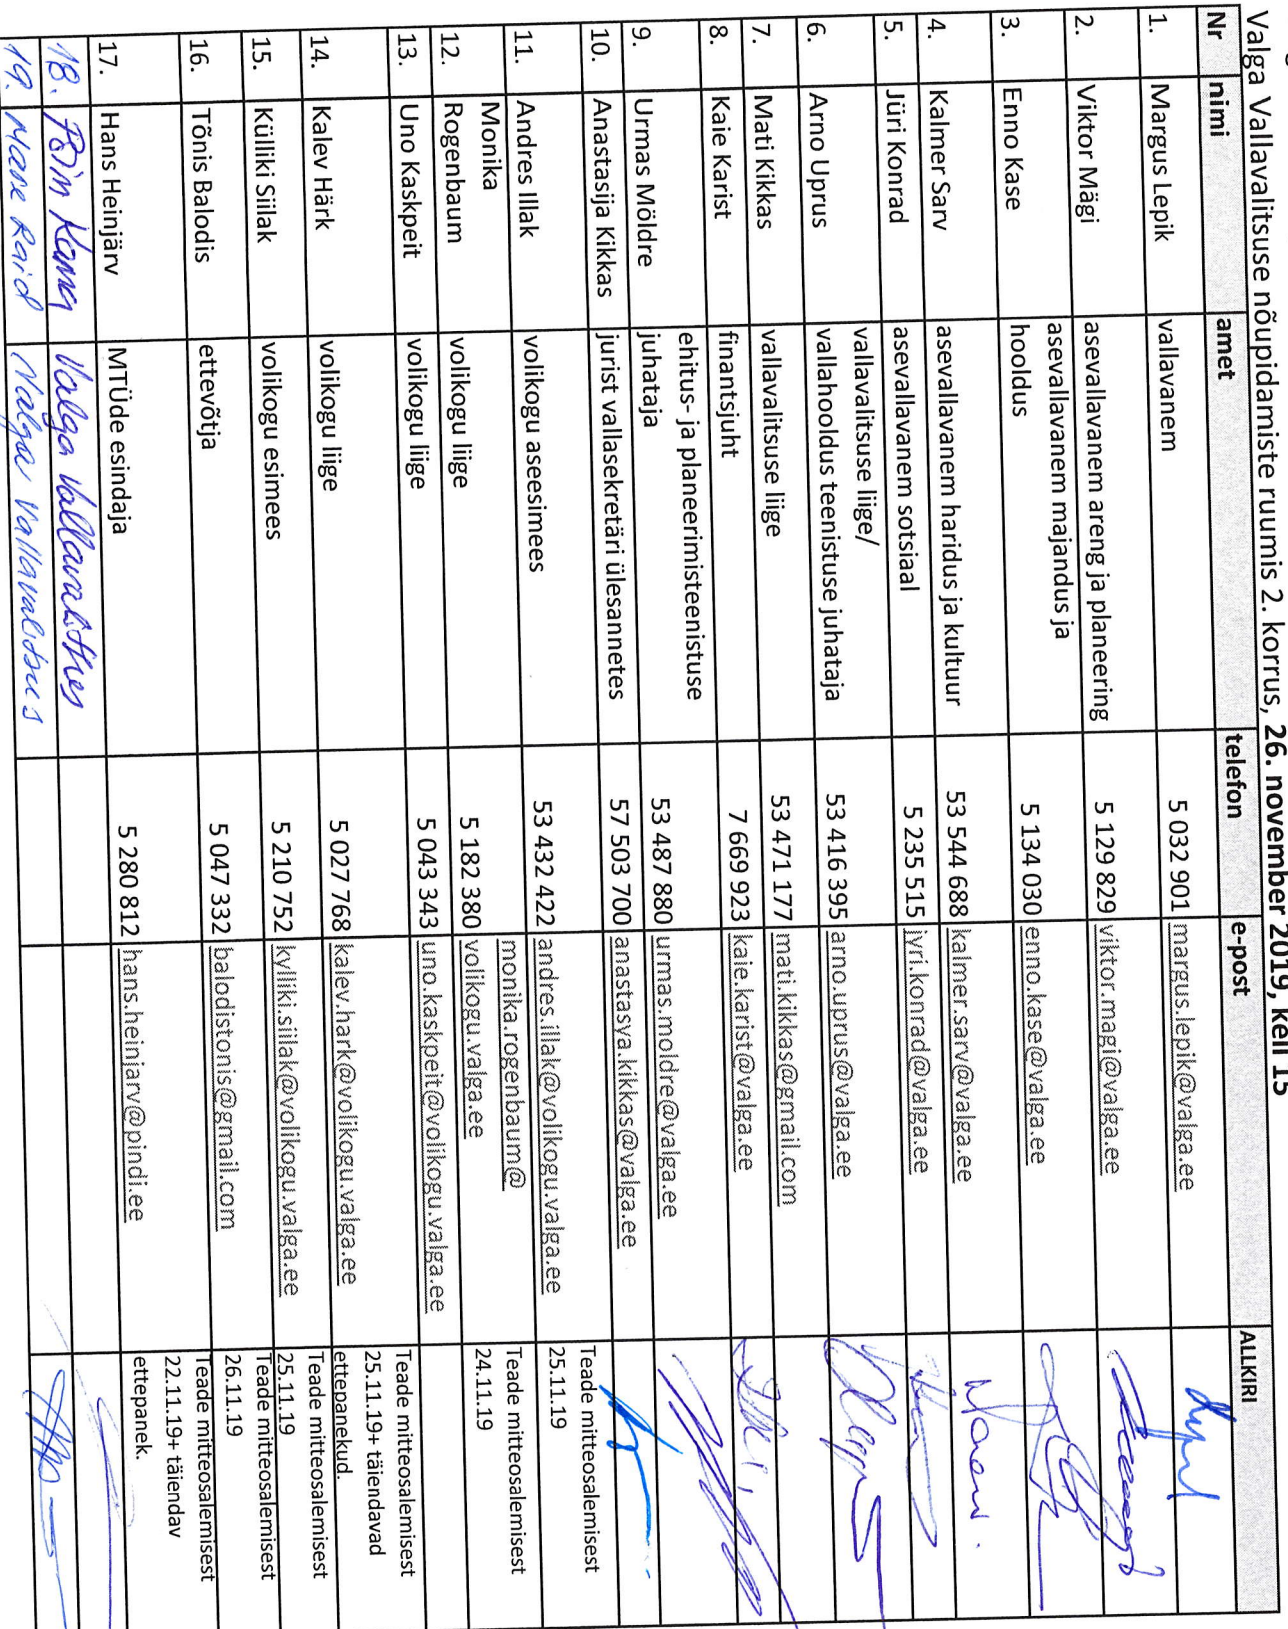 Valga Vallavalitsuse nõupidamiste ruumis 2. korrus, 26. november 2019, kell 15
Nr nimi amet telefon e-post ALLKIRI
1. Margus Lepik vallavanem 5 032 901 margus.lepik@valga.ee
2. Viktor Mägi asevallavanem areng ja planeering 5 129 829 viktor.magi@valga.ee
3. Enno Kase asevallavanem majandus ja
hooldus 5 134 030 enno.kase@valga.ee
4. Kalmer Sarv asevallavanem haridus ja kultuur 53 544 688 kalmer.sarv@valga.ee
5. Jüri Konrad asevallavanem sotsiaal 5 235 515 jyri.konrad@valga.ee
6. Arno Uprus vallavalitsuse liige/
vallahooldus teenistuse juhataja 53 416 395 arno.uprus@valga.ee
7. Mati Kikkas vallavalitsuse liige 53 471 177 mati.kikkas@gmail.com
8. Kaie Karist finantsjuht 7 669 923 kaie.karist@valga.ee
9. Urmas Möldre ehitus- ja planeerimisteenistuse
juhataja 53 487 880 urmas.moldre@valga.ee
10. Anastasija Kikkas jurist vallasekretäri ülesannetes 57 503 700 anastasya.kikkas@valga.ee
11. Andres Illak volikogu aseesimees 53 432 422 andres.illak@volikogu.valga.ee Teade mitteosalemisest
25.11.19
12. Monika
Rogenbaum volikogu liige 5 182 380 monika.rogenbaum@
volikogu.valga.ee Teade mitteosalemisest
24.11.19
13. Uno Kaskpeit volikogu liige 5 043 343 uno.kaskpeit@volikogu.valga.ee
14. Kalev Härk volikogu liige 5 027 768 kalev.hark@volikogu.valga.ee Teade mitteosalemisest
25.11.19+ täiendavad
ettepanekud.
15. Külliki Siilak volikogu esimees 5 210 752 kylliki.siilak@volikogu.valga.ee Teade mitteosalemisest
25.11.19
16. Tõnis Balodis ettevõtja 5 047 332 balodistonis@gmail.com Teade mitteosalemisest
26.11.19
17. Hans Heinjärv MTÜde esindaja 5 280 812 hans.heinjarv@pindi.ee Teade mitteosalemisest
22.11.19+ täiendav
ettepanek.
18. Valga Vallavalitsus
19. Mare Raid Valga Vallavalitsus